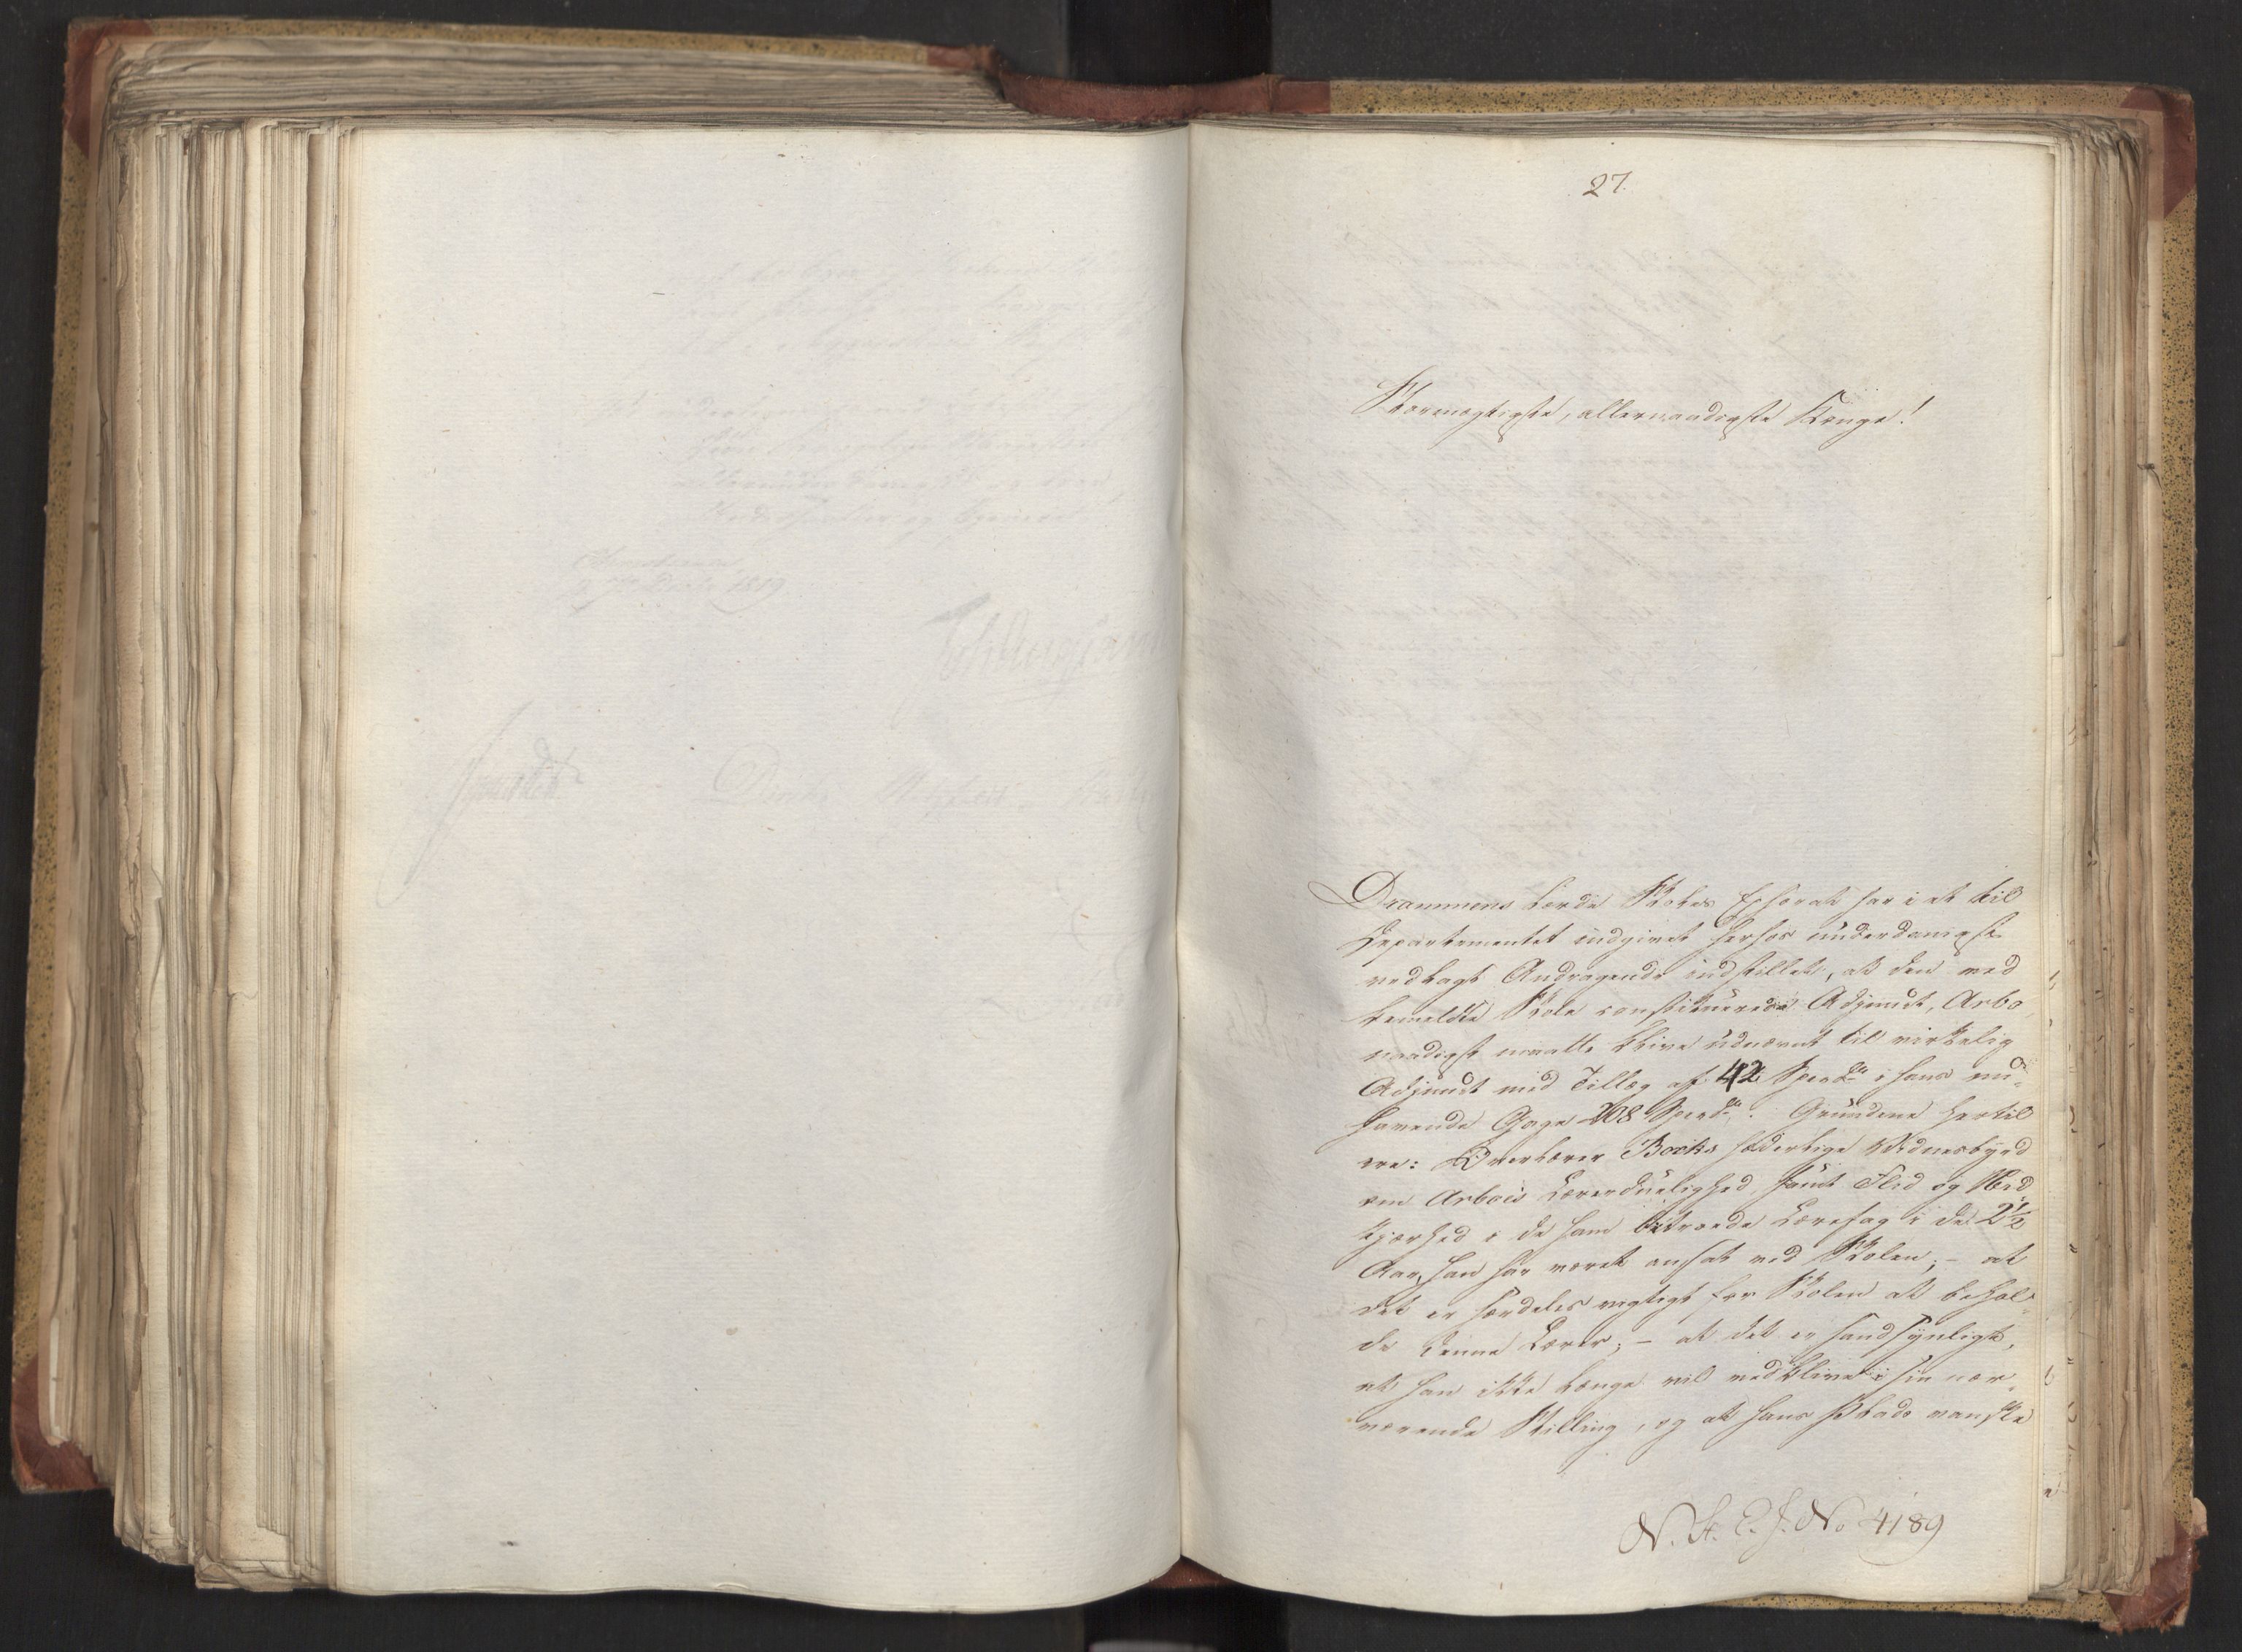 27.
Stormægtigste, allernaadigste Konge!
Drammens lærde Skoles Ephorat har i et til
Departementet indgivet herhos underdanigst
vedlagt Andragende indstillet, at den ved
bemeldte Skole constituerede Adjunct, Arbo
naadigst maatte blive udnævnt til virkelig
Adjunct med Tillæg af 42 Specd. i hans nu-
havende Gage 208 Specd. Grundene hertil
ere: Overlærer Bocks hæderlige Vidnesbyrd
om Arbos Lærerduelighed samt Flid og Nid
kjærhed i de ham betroede Lærefag i de 2½
Aar, han har været ansat ved Skolen; - at
det er særdeles vigtigt for Skolen at behol-
de denne Lærer; - at det er sandsynligt,
at han ikke længe vil vedblive i sin nær-
værende Stilling, og at hans Plads vanske
N. St. E. J. No 4189